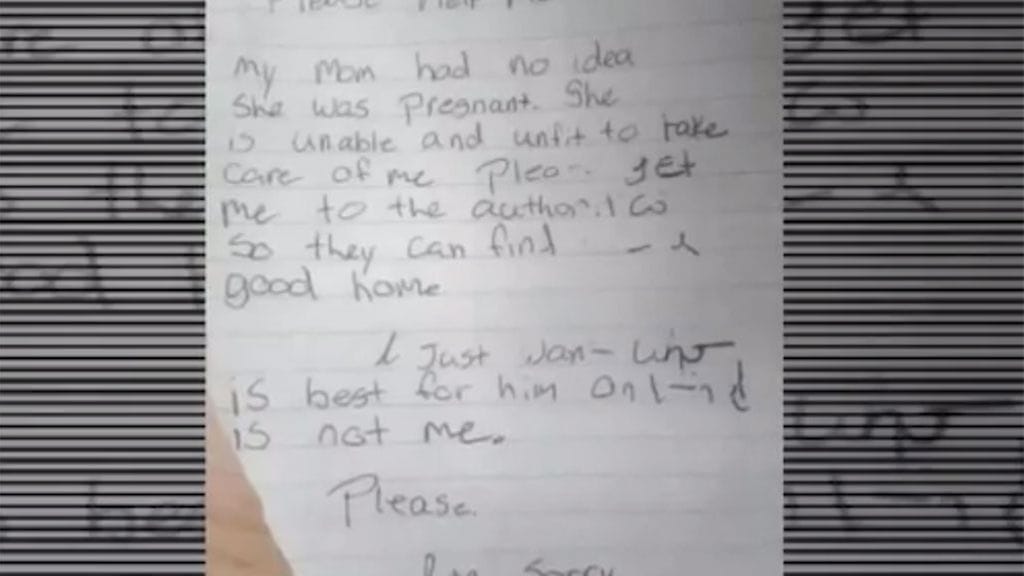 Please Help Me
My Mom had no idea
She was Pregnant. She
is unable and unfit to take
care of me Pleas get
me to the
So they can find a
good home
I Just wan
is best for him and
is not me.
Please.
I'm Sorry